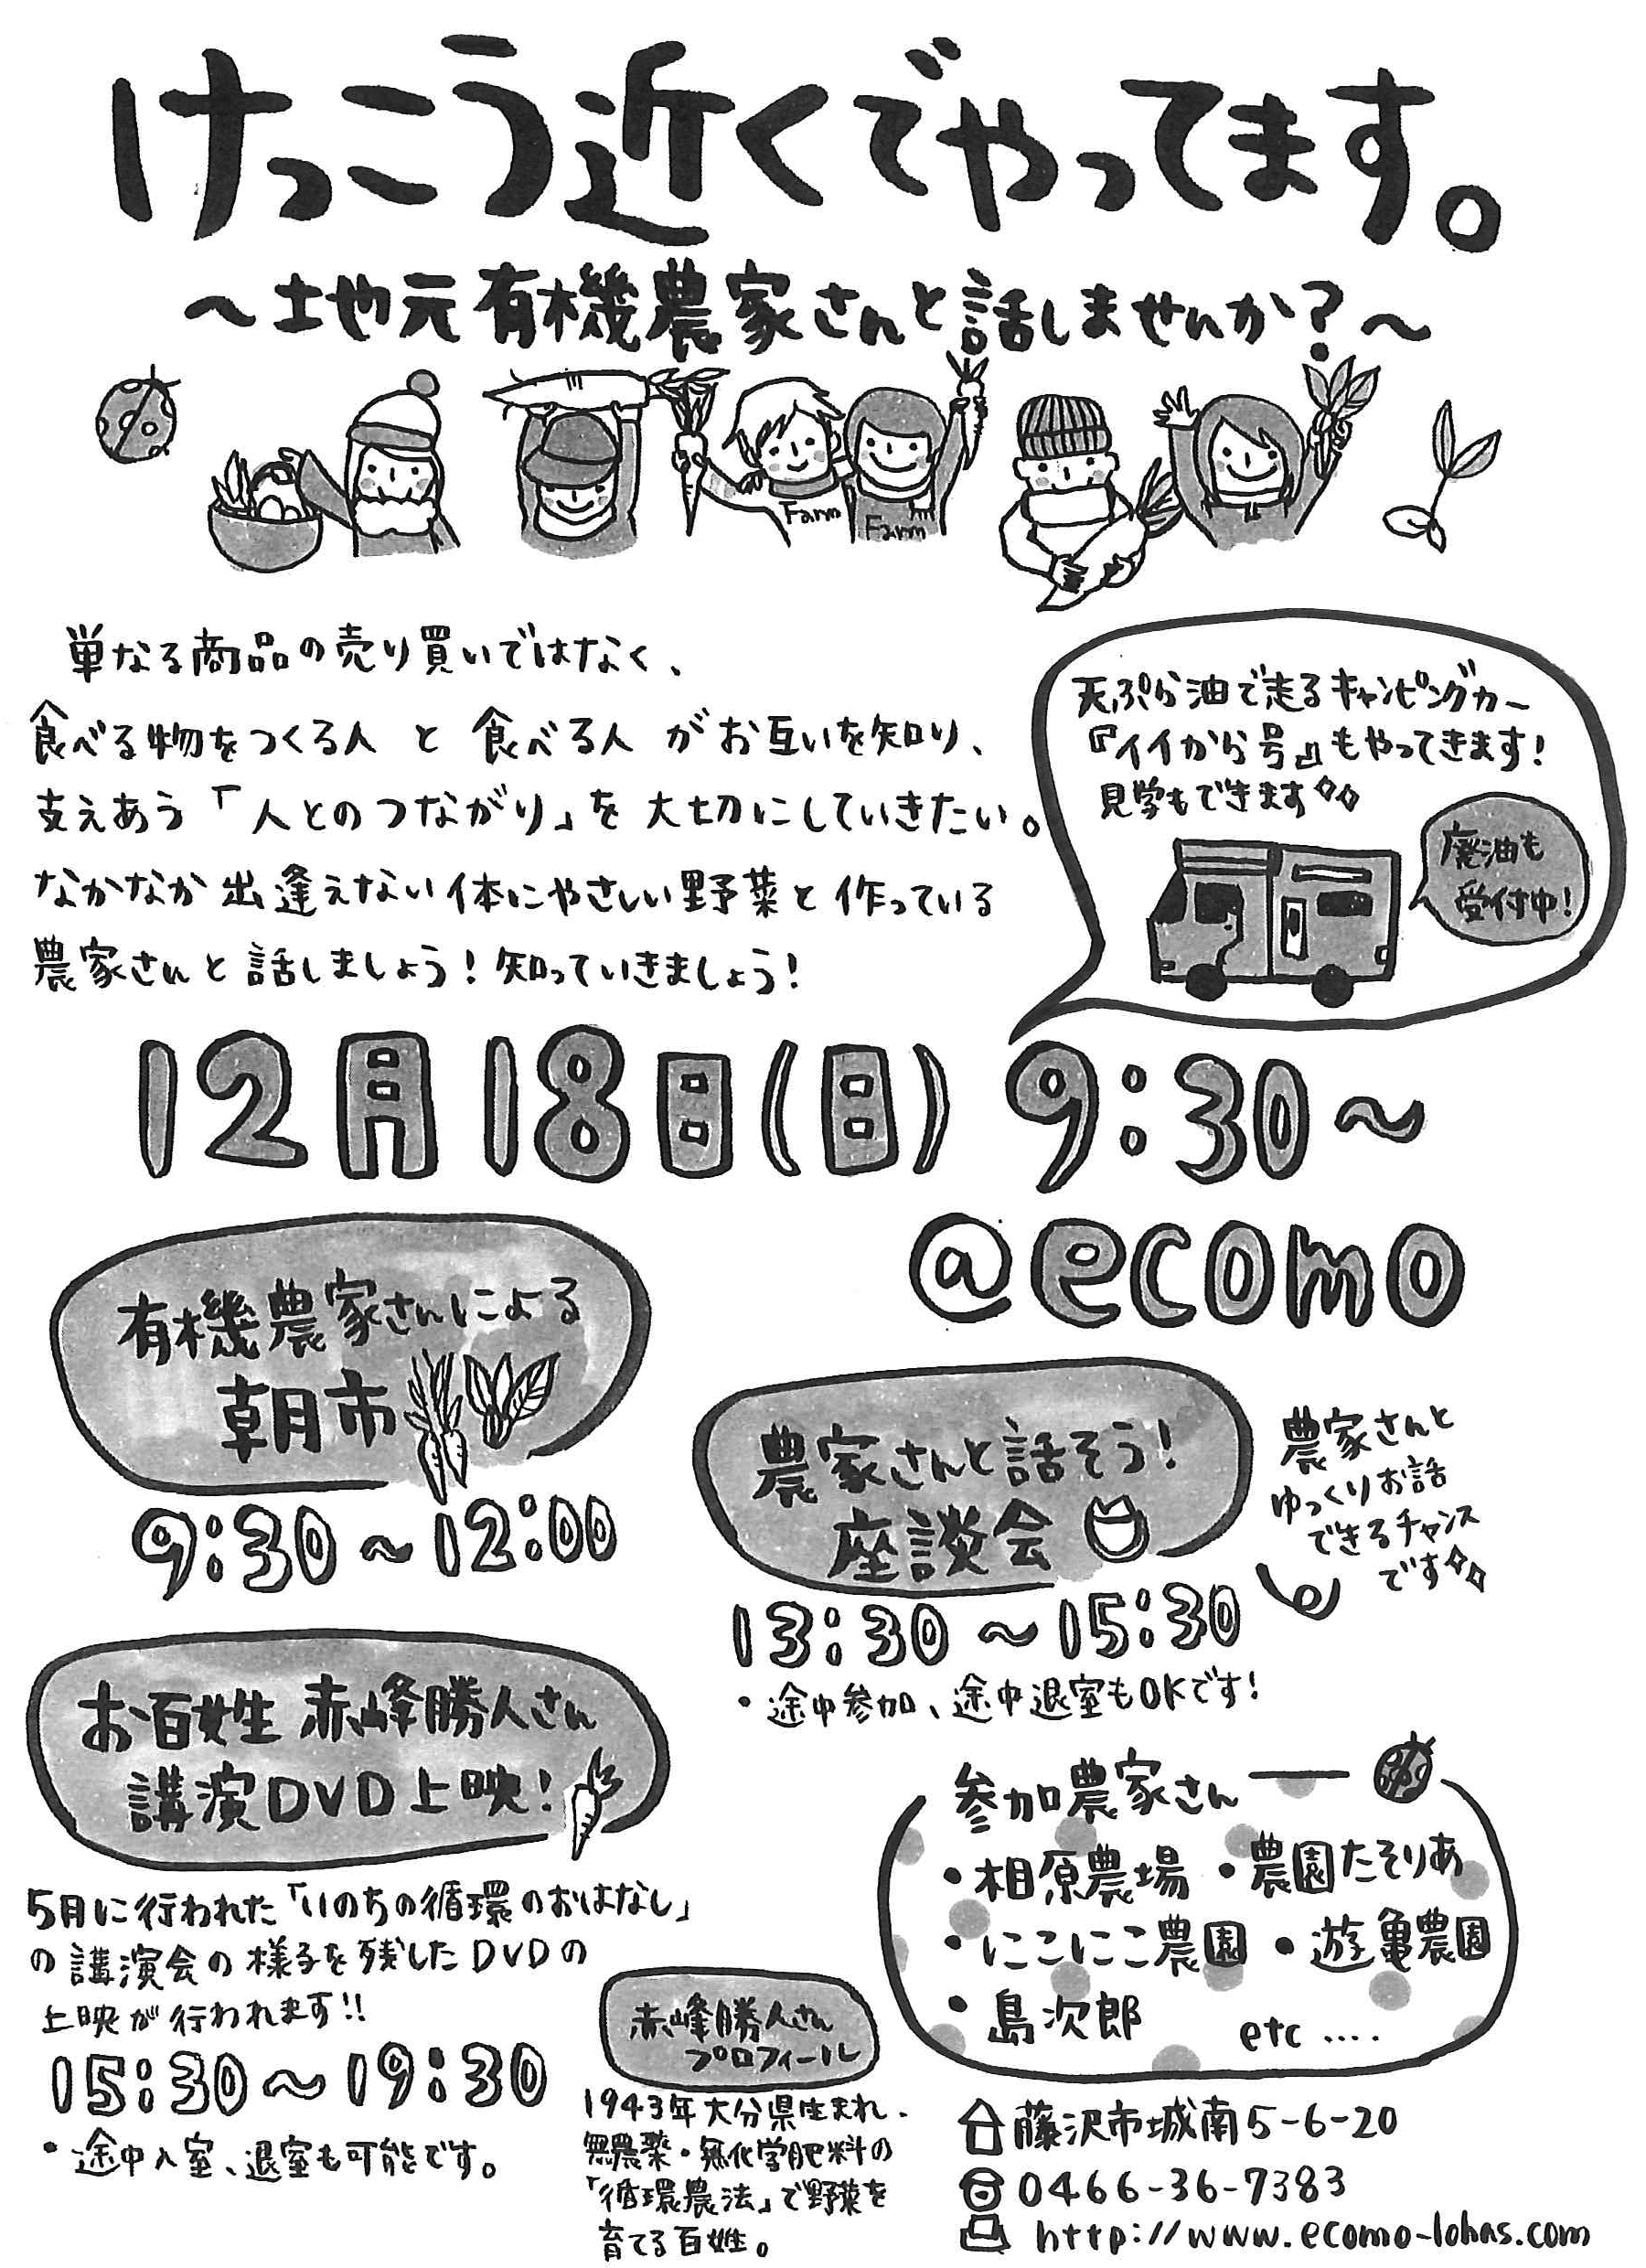 けっこう近くでやってます。
～地元有機農家さんと話しませんか?～
Farm
Farm
単なる商品の売り買いではなく、
食べる物をつくる人 と 食べる人 がお互いを知り、
支えあう「人とのつながり」を大切にしていきたい。
なかなか出逢えない体にやさしい野菜と作っている
農家さんと話しましょう!知っていきましょう!
天ぷら油で走るキャンピングカー
『イイから号』もやってきます!
見学もできます
廃油も
受付中!
12月18日(日) 9:30～
@ecomo
有機農家さんによる
朝市
9:30～12:00
農家さんと話そう!
座談会
農家さんと
ゆっくりお話
できるチャンス
です
13:30～15:30
・途中参加、途中退室もOKです!
お百姓 赤峰勝人さん
講演DVD上映!
5月に行われた「いのちの循環のおはなし」
の講演会の様子を残したDVDの
上映が行われます!!
15:30～19:30
・途中入室、退室も可能です。
赤峰勝人さん
プロフィール
1943年大分県生まれ、
無農薬・無化学肥料の
「循環農法」で野菜を
育てる百姓。
参加農家さん
・相原農場 ・農園たそりあ
・にこにこ農園 ・遊亀農園
・島次郎 etc ....
藤沢市城南5-6-20
0466-36-7383
http://www.ecomo-lohas.com